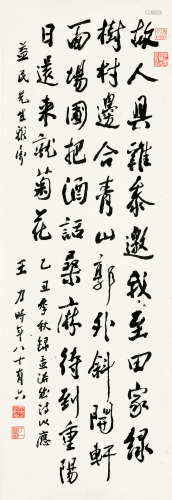 故人具雞黍邀我至田家綠
樹村邊合青山郭外斜開軒
面場圃把酒話桑麻待到重陽
日還來就菊花
乙丑季秋錄孟浩然诗以應
益民先生雅屬
王力時年八十有六